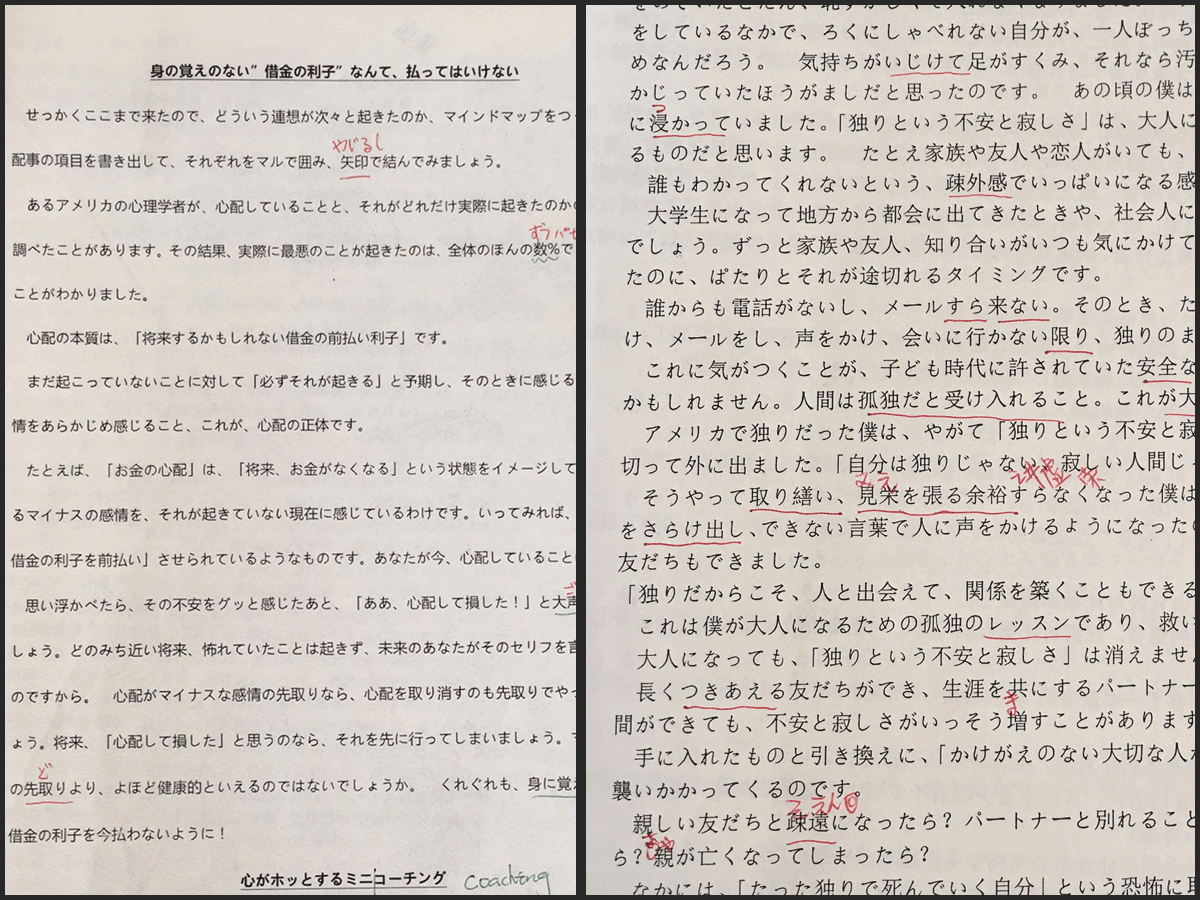 身の覚えのない”借金の利子”なんて、払ってはいけない
せっかくここまで来たので、どういう連想が次々と起きたのか、マインドマップをつ
やじるし
配事の項目を書き出して、それぞれをマルで囲み、矢印で結んでみましょう。
あるアメリカの心理学者が、心配していることと、それがどれだけ実際に起きたのかの
調べたことがあります。その結果、実際に最悪のことが起きたのは、全体のほんの数%で
ことがわかりました。
心配の本質は、「将来するかもしれない借金の前払い利子」です。
まだ起こっていないことに対して「必ずそれが起きる」と予期し、そのときに感じる
情をあらかじめ感じること、これが、心配の正体です。
たとえば、「お金の心配」は、「将来、お金がなくなる」という状態をイメージして
るマイナスの感情を、それが起きていない現在に感じているわけです。いってみれば、
借金の利子を前払い」させられているようなものです。あなたが今、心配していること
思い浮かべたら、その不安をグッと感じたあと、「ああ、心配して損した！」と大声
しょう。どのみち近い将来、怖れていたことは起きず、未来のあなたがそのセリフを言
のですから。 心配がマイナスな感情の先取りなら、心配を取り消すのも先取りでやっ
ょう。将来、「心配して損した」と思うのなら、それを先に行ってしまいましょう。
ど
の先取りより、よほど健康的といえるのではないでしょうか。 くれぐれも、身に覚え
借金の利子を今払わないように！
心がホッとするミニコーチング coaching
をしているなかで、ろくにしゃべれない自分が、一人ぼっち
めなんだろう。 気持ちがいじけて足がすくみ、それなら汚
かじっていたほうがましだと思ったのです。 あの頃の僕は
つ
に浸かっていました。「独りという不安と寂しさ」は、大人に
るものだと思います。 たとえ家族や友人や恋人がいても、
誰もわかってくれないという、疎外感でいっぱいになる感
大学生になって地方から都会に出てきたときや、社会人に
でしょう。ずっと家族や友人、知り合いがいつも気にかけて
たのに、ぱたりとそれが途切れるタイミングです。
誰からも電話がないし、メールすら来ない。そのとき、た
け、メールをし、声をかけ、会いに行かない限り、独りのま
これに気がつくことが、子ども時代に許されていた安全な
かもしれません。人間は孤独だと受け入れること。これが大
アメリカで独りだった僕は、やがて「独りという不安と寂
切って外に出ました。「自分は独りじゃない、寂しい人間じ
みえ
そうやって取り繕い、見栄を張る余裕すらなくなった僕は
をさらけ出し、できない言葉で人に声をかけるようになった
友だちもできました。
「独りだからこそ、人と出会えて、関係を築くこともできる
これは僕が大人になるための孤独のレッスンであり、救い
大人になっても、「独りという不安と寂しさ」は消えません
長くつきあえる友だちができ、生涯を共にするパートナー
間ができても、不安と寂しさがいっそう増すことがあります
手に入れたものと引き換えに、「かけがえのない大切な人が
襲いかかってくるのです。
そえん
親しい友だちと疎遠になったら？ パートナーと別れること
ら？ 親が亡くなってしまったら？
なかには、「たった独りで死んでいく自分」という恐怖に